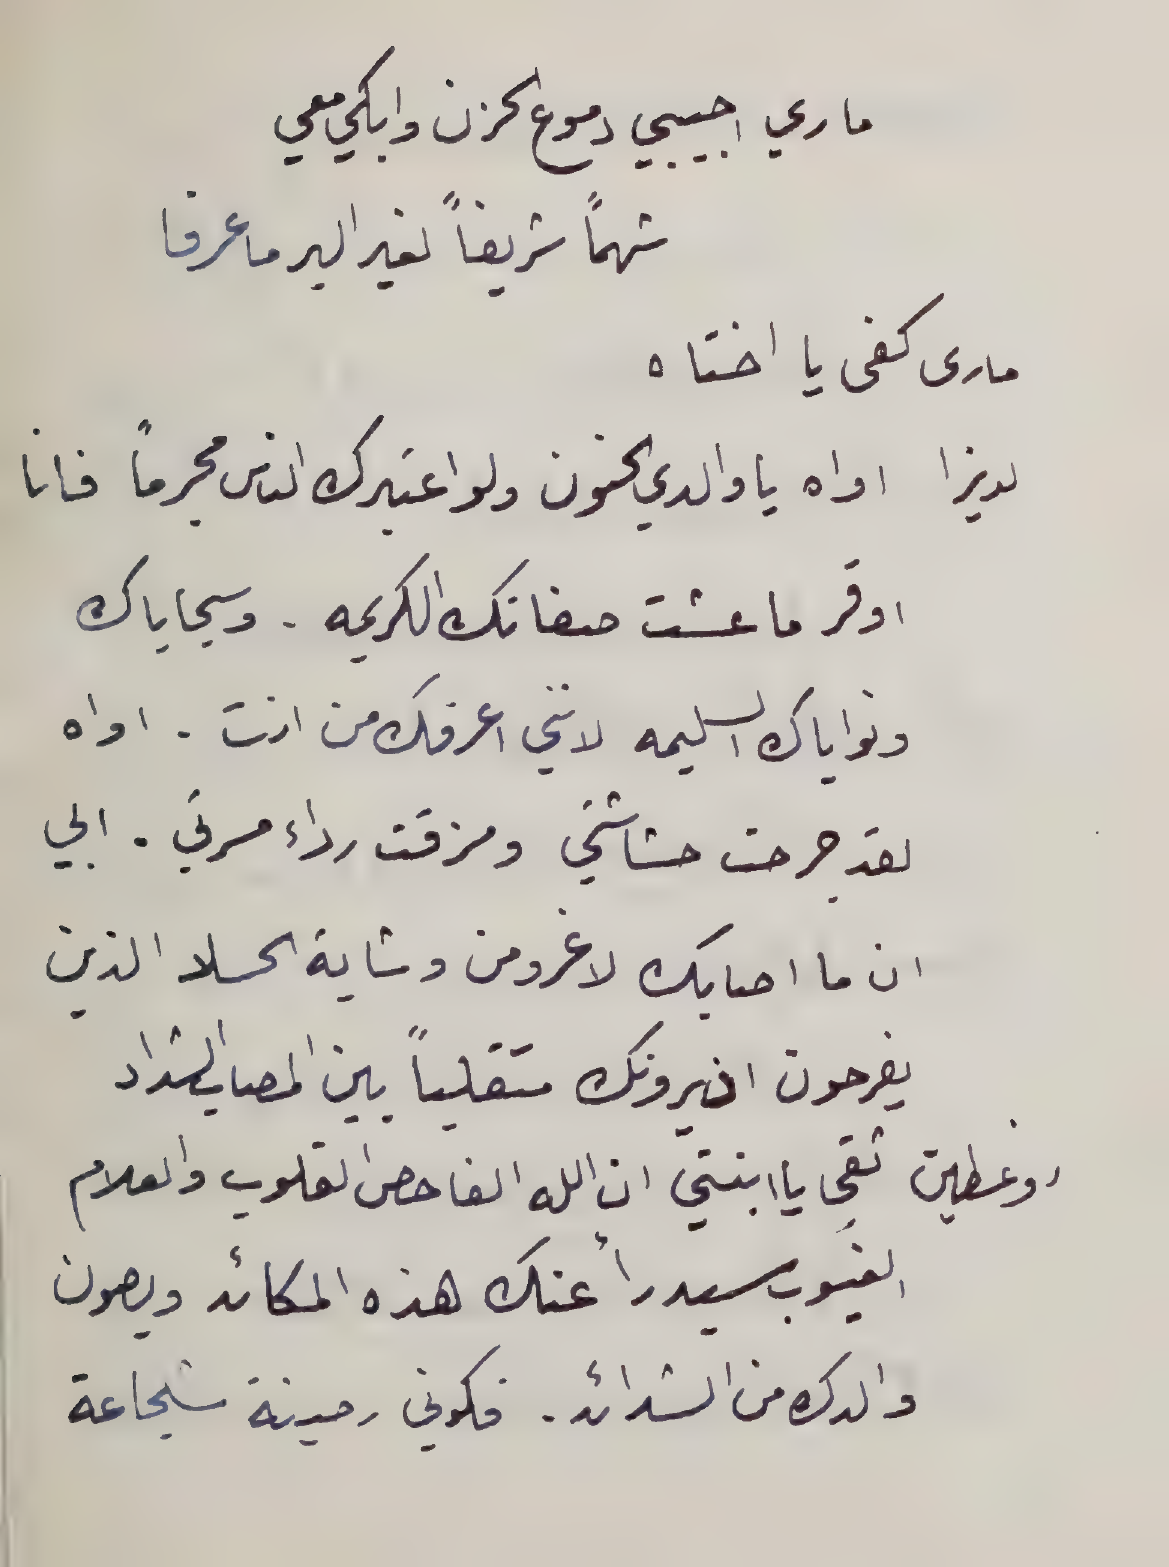 ماري احبيبي دموع الحزن وابكي معي
شهماً شريفاً لغير البر ما عرفا
مارى كفى يا اختاه
لديزا اواه يا والدي الحنون ولو اعتبرك الناس مجرماً فانا
اوقر ما عشت صفاتك الكريمه . وسجاياك
ونواياك السليمه لانني اعرفك من انت . اواه
لقد جرحت حشاشتي ومزقت رداء مسرتي . ابي
ان ما اصابك لا غرو من وشاية الحساد الذين
يفرحون ان يرونك متقلباً بين المصايب الشداد
روغطين ثقي يا ابنتي ان الله الفاحص القلوب والعلام
الغيوب سيدرأ عنك هذه المكائد ويصون
والدك من الشدائد . فكوني رصينة شجاعة